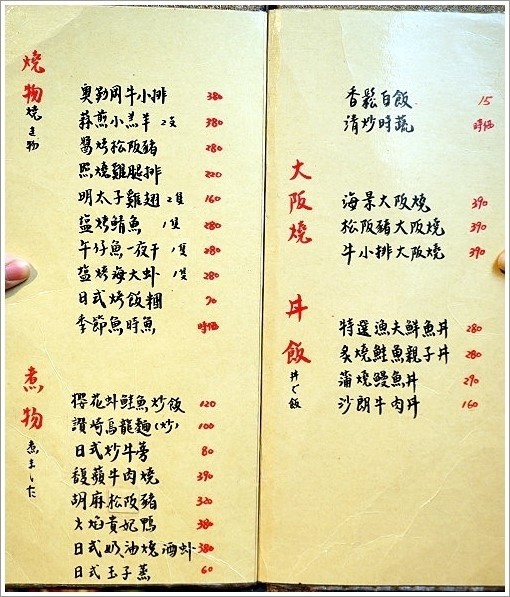 燒物 燒き物
奧勒岡牛小排 380
蒜煎小羔羊 2支 380
醬烤松阪豬 280
照燒雞腿排 220
明太子雞翅 2隻 160
塩烤鯖魚 1隻 280
午仔魚一夜干 1隻 280
塩烤海大虾 1隻 280
日式烤飯糰 70
季節魚時魚 時価
煮物 煮ました
櫻花虾鮭魚炒飯 120
讚崎烏龍麵(炒) 100
日式炒牛蒡 80
馥蘋牛肉燒 390
胡麻松阪豬 320
火焰貴妃鴨 380
日式奶油燒酒虾 380
日式玉子蒸 60
香鬆白飯 15
清炒時蔬 時価
大阪燒
海景大阪燒 390
松阪豬大阪燒 390
牛小排大阪燒 390
丼飯 丼で飯
特選漁夫鮮魚丼 280
炙燒鮭魚親子丼 280
蒲燒鰻魚丼 290
沙朗牛肉丼 160